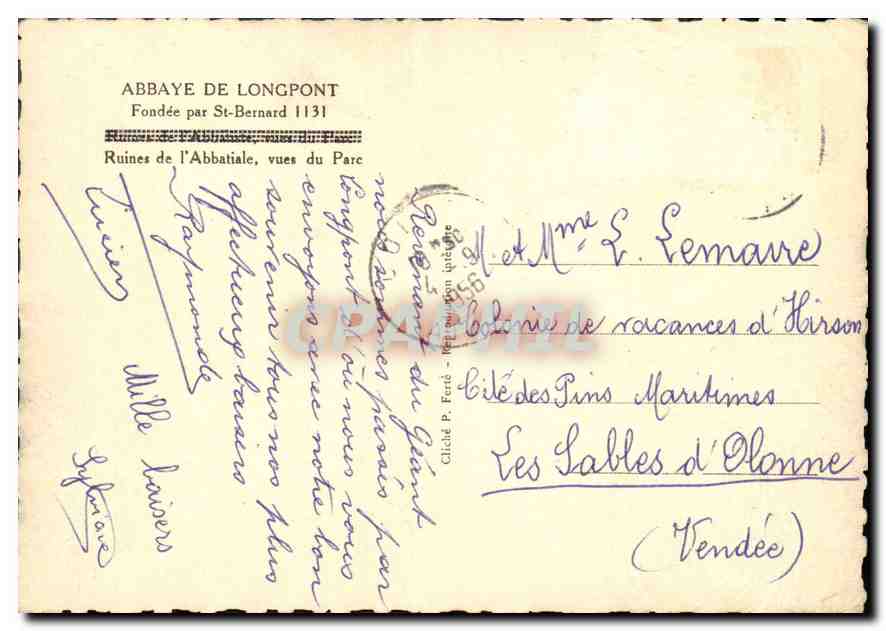 ABBAYE DE LONGPONT
Fondée par St-Bernard 1131
Ruines de l'Abbatiale, vues du Parc
Ruines de l'Abbatiale, vues du Parc
Revenant du Géant
nous sommes passés par
Longpont d'où nous vous
envoyons avec notre bon
souvenir tous nos plus
affectueux baisers
Raymonde
Lucien
Mille baisers
Sylviane
Cliché P. Ferté - Reproduction interdite
M. et Mme L. Lemaire
Colonie de vacances d'Hirson
Cité des Pins Maritimes
Les Sables d'Olonne
(Vendée)
1956
CPARHIL